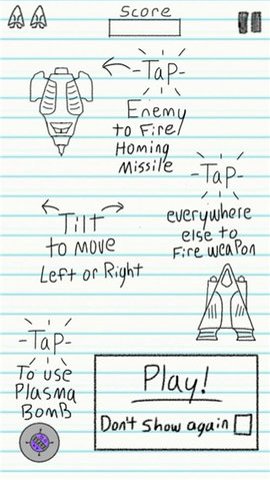 Score
-Tap-
Enemy
to Fire
Homing
Missile
-Tap-
everywhere
else to
Fire weapon
Tilt
to move
Left or Right
-Tap-
To use
Plasma
BomB
Play!
Don't show again